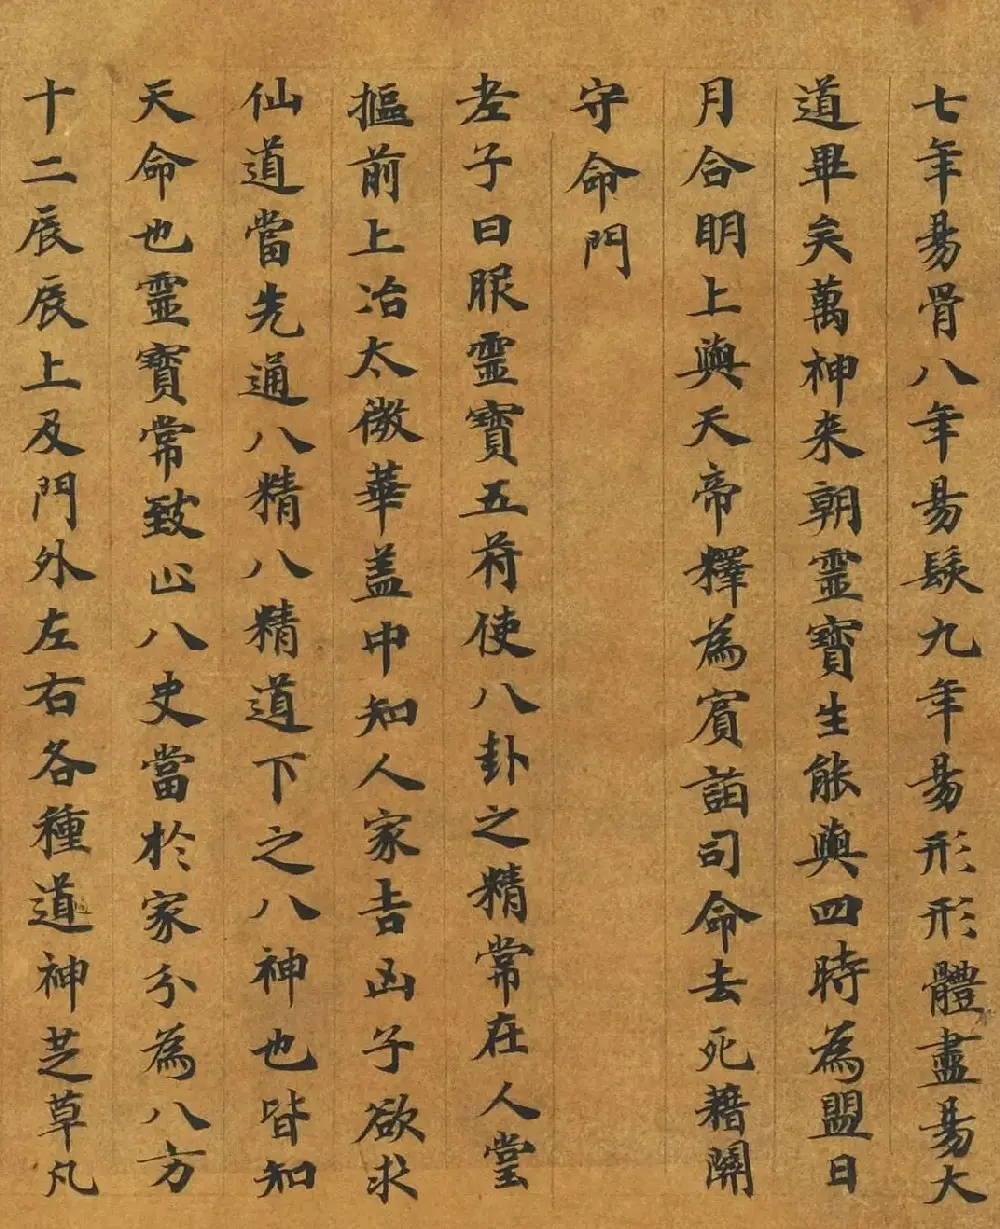 七年易骨八年易髮九年易形形體盡易大
道畢矣萬神来朝靈寶生能與四時為盟日
月合明上與天帝釋為賓詣司命去死藉關
守命門
老子曰服靈寶五符使八卦之精常在人堂
摳前上治太微華盖中知人家吉凶子欲求
仙道當先通八精八精道下之八神也皆知
天命也靈寶常致止八史當於家分為八方
十二辰辰上及門外左右各種道神芝草凡